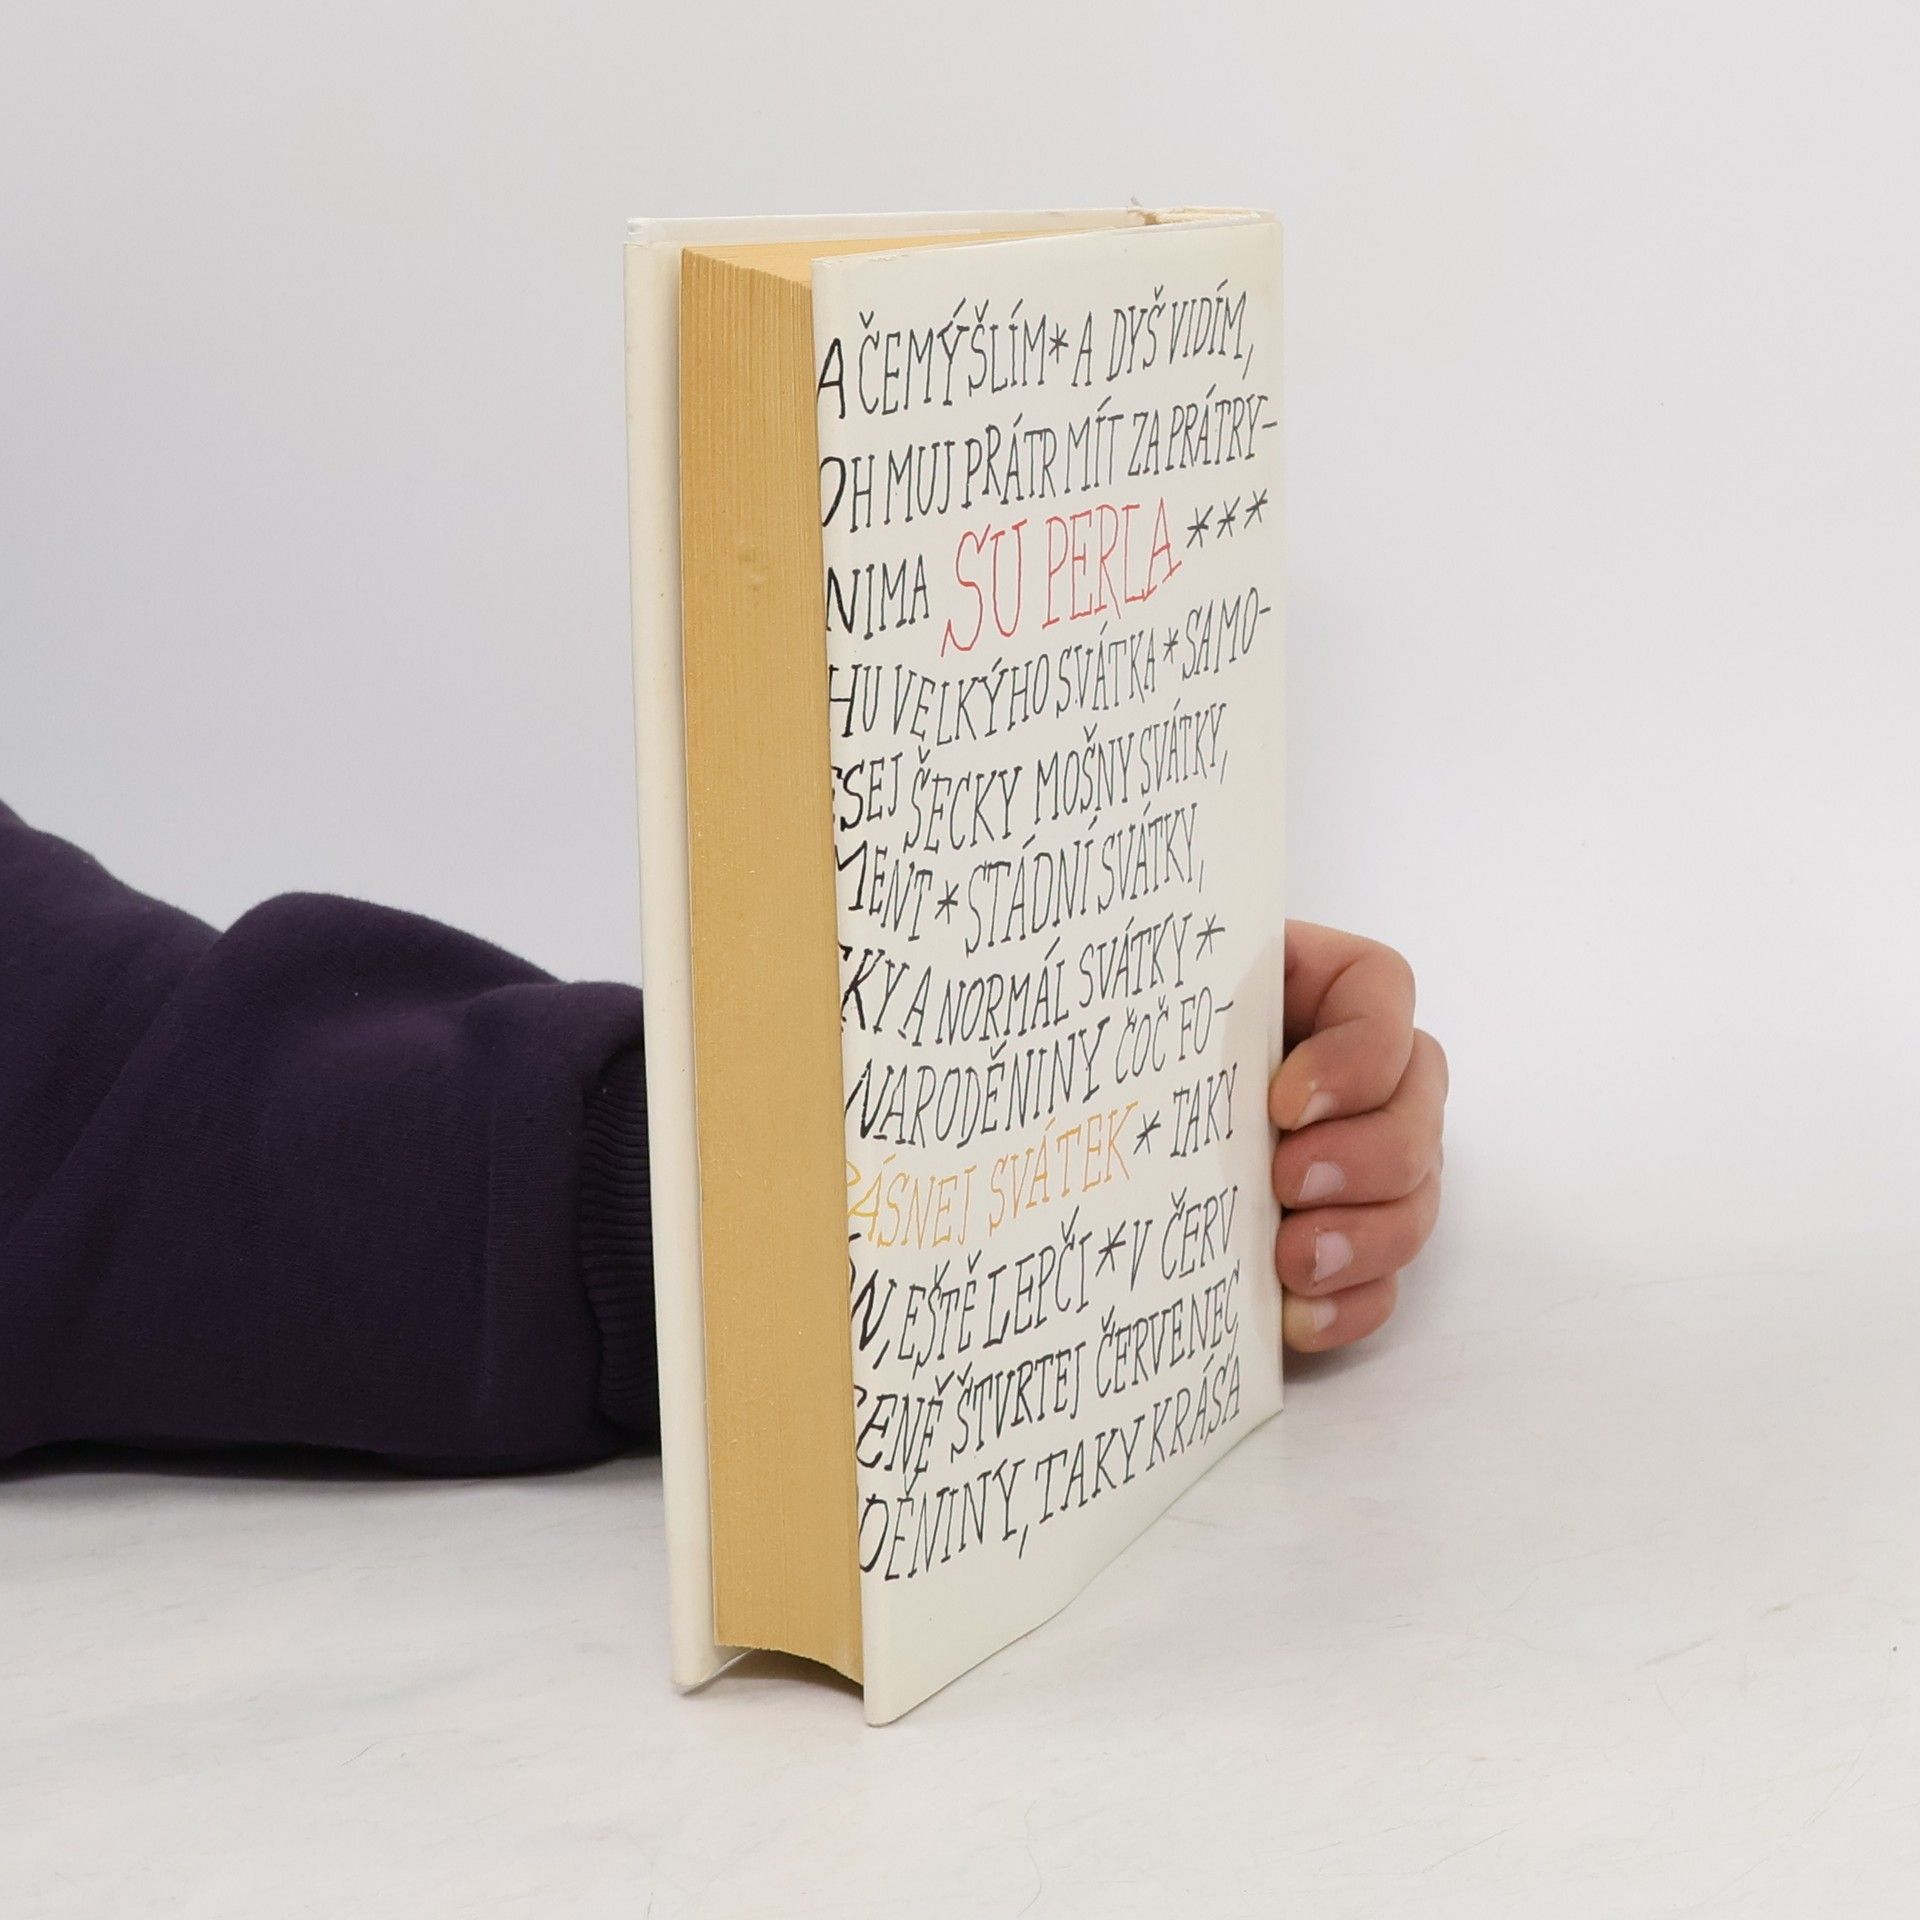 A ČEMÝŠLÍM * A DYŠ VIDÍM,
OH MUJ PRÁTR MÍT ZA PRÁTRY-
NIMA SU PERLA ***
HU VELKÝHO SVÁTKA * SAMO-
ESEJ ŠECKY MOŠNY SVÁTKY,
MENT * STÁDNÍ SVÁTKY,
KY A NORMÁL SVÁTKY *
NARODĚNINY ČOČ FO-
ÁSNEJ SVÁTEK * TAKY
N, EŠTĚ LEPČI * V ČERV
ENĚ ŠTVRTEJ ČERVENEC,
DĚNINY, TAKY KRÁSA